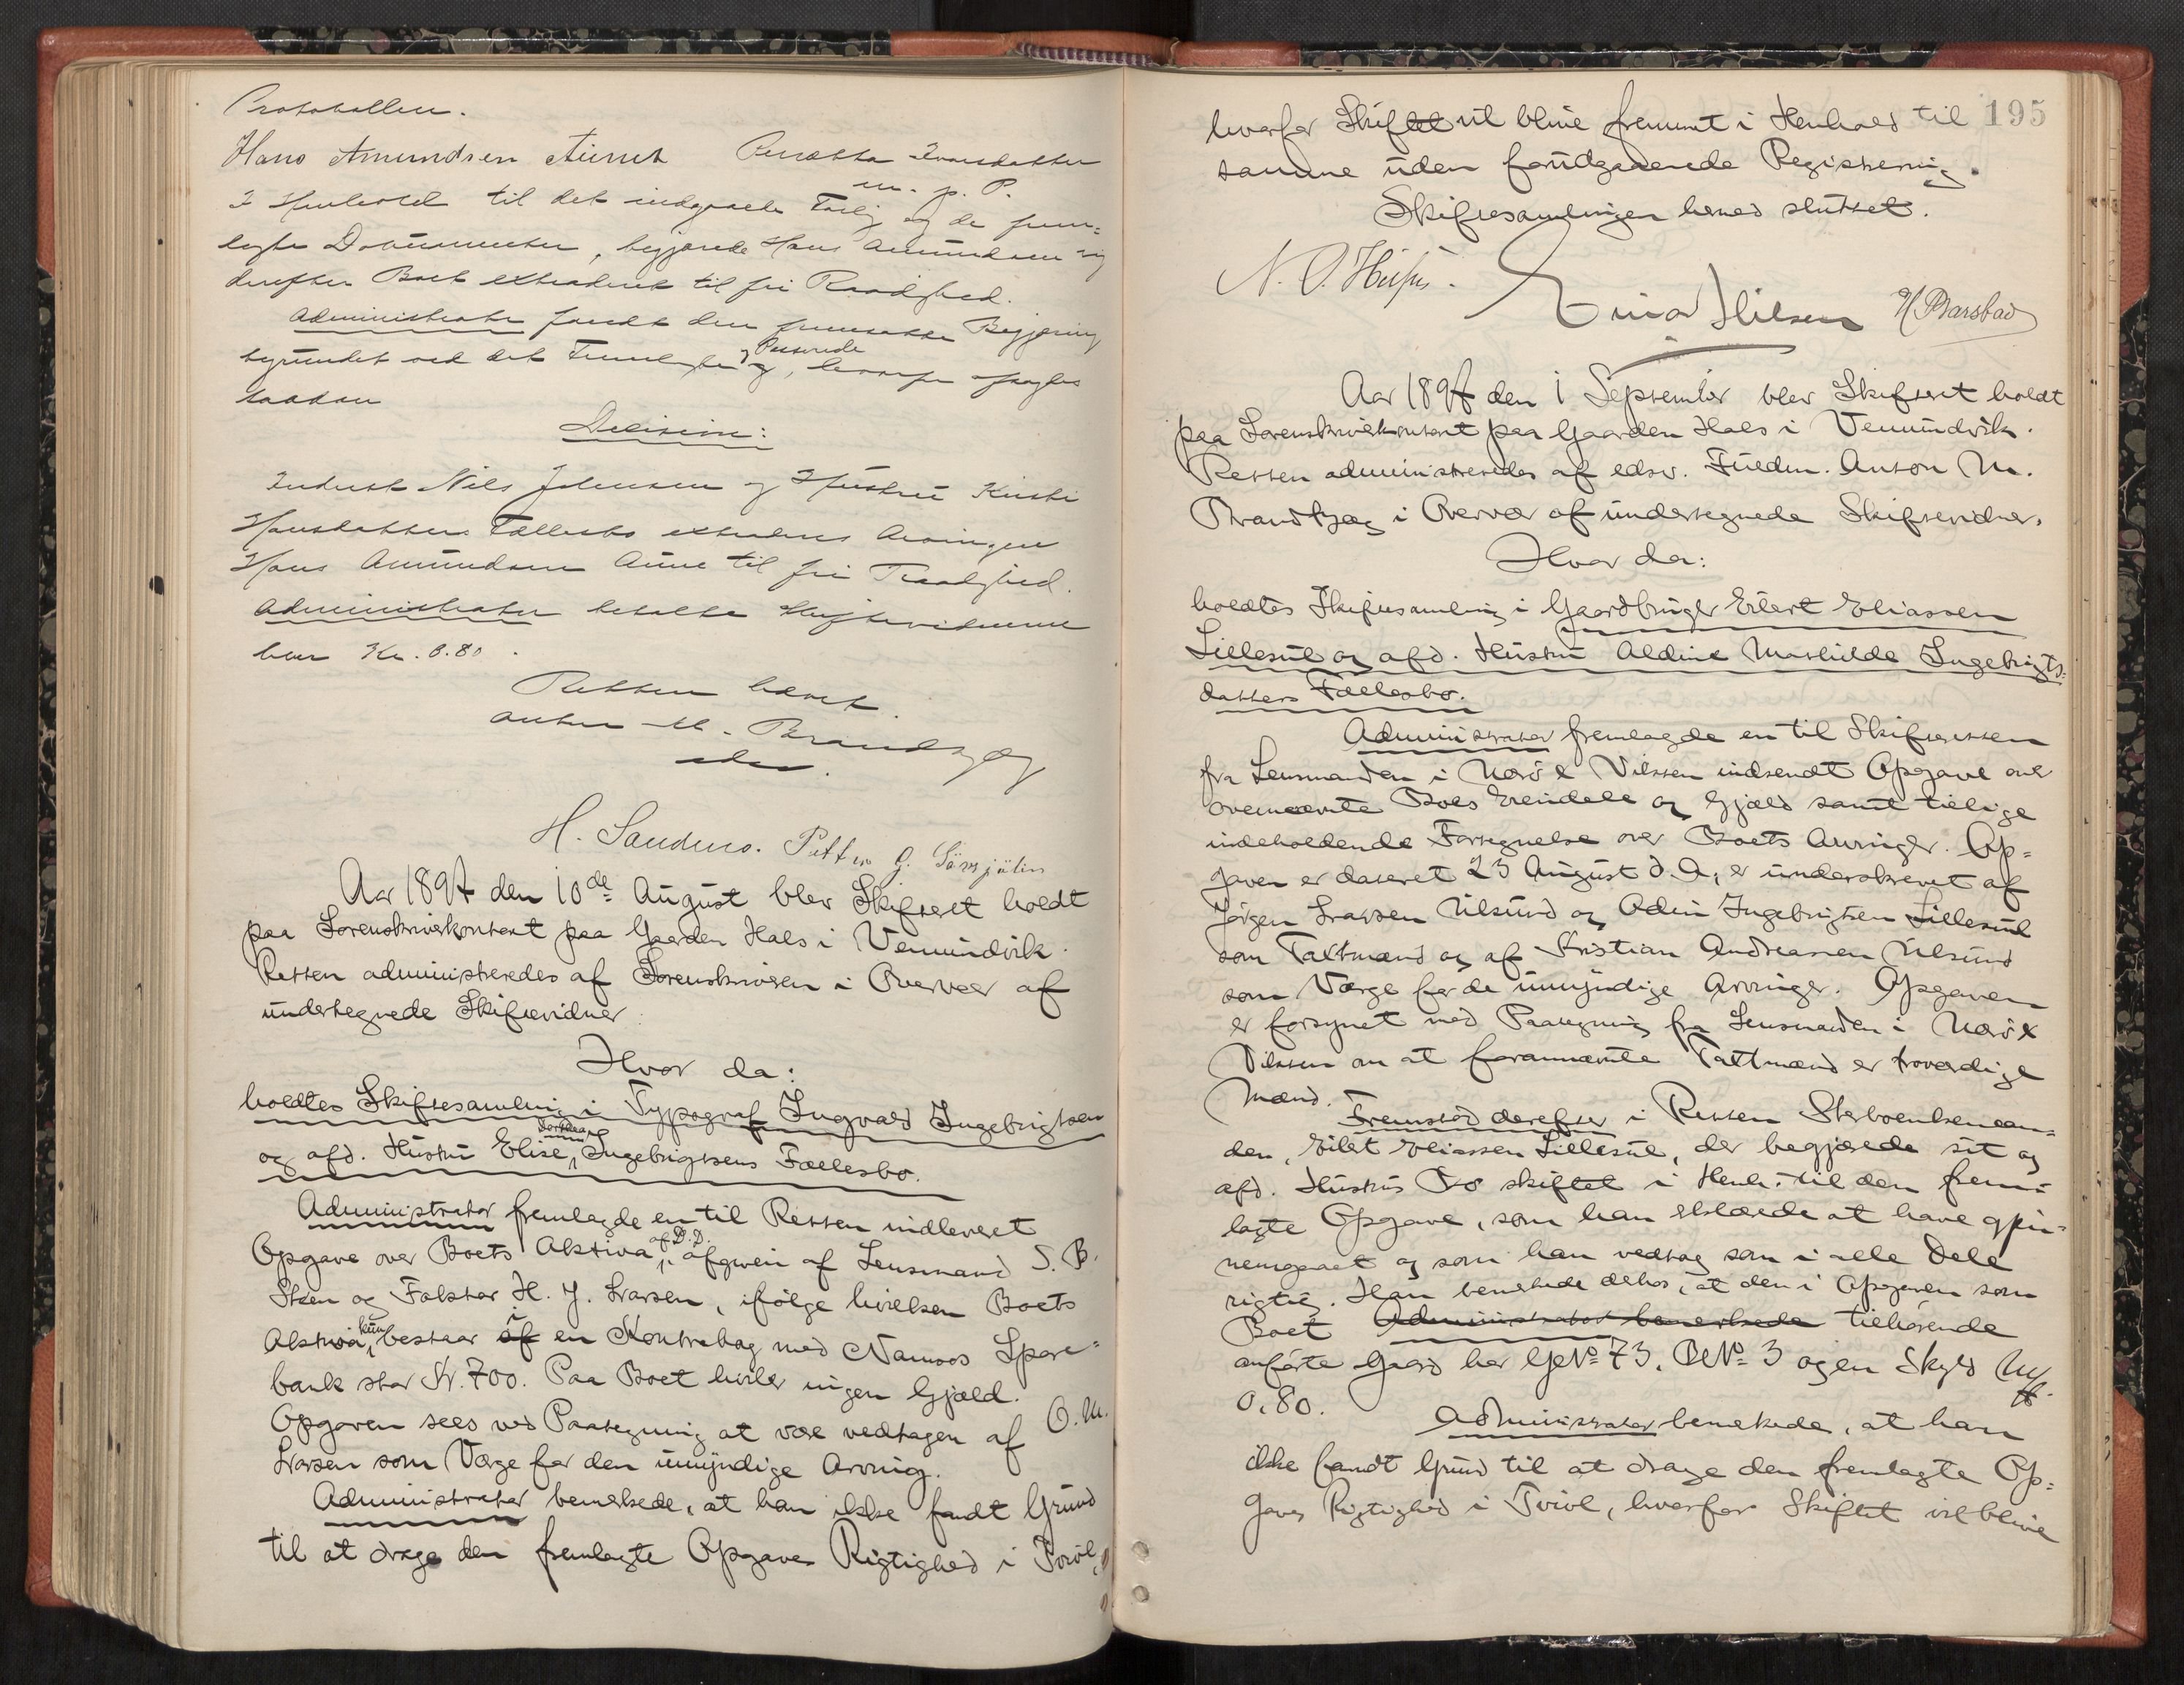 Protokollen.
Hans Amundsen Aunet Renætta Ivarsdatter
m. p. P.
I Henhold til det indgaaede Forlig og de frem-
lagte Documenter, begjærede Hans Amundsen sig
derefter Boet extraderet til fri Raadighed.
Administrator fandt den fremsatte Begjæring
begrundet ved det Fremlagte og Passerede, hvorfor afsagdes
saadan
Decision:
Inderst Nils Johnsen og Hustru Kirsti
Hansdatters Fællesbo extraderes Arvingen
Hans Amundsen Aune til fri Raadighed.
Administrator betalte Skiftevidnerne
hver Kr. 0.80.
Retten hævet.
Anton M. Brandtzæg
edsv.
H. Sandnes. Petter G.
Aar 1897 den 10de August blev Skifteret holdt
paa Sorenskriverkontoret paa Gaarden Hals i Vemundvik.
Retten administreredes af Sorenskriveren i Overvær af
undertegnede Skiftevidner
Hvor da:
holdtes Skiftesamling i Typograf Ingvald Ingebrigtsen
og afd. Hustru Elise Dorthea Ingebrigtsens Fællesbo.
Administrator fremlagde en til Retten indleveret
Opgave over Boets Aktiva af D.D. afgiven af Lensmand S. B.
Steen og Faktor H. J. Larsen, ifølge hvilken Boets
Aktiva kun bestaar af i en Kontrabog med Namsos Spare-
bank stor Kr. 700. Paa Boet hviler ingen Gjæld.
Opgaven sees ved Paategning at være vedtagen af O. M.
Larsen som Værge for den umyndige Arving.
Administrator bemerkede, at han ikke fandt Grund
til at drage den fremlagte Opgaves Rigtighed i Tvivl,
195
hvorfor Skiftet vil blive fremmet i Henhold til
samme uden forudgaaende Registrering.
Skiftesamlingen hermed sluttet.
N. O.
Einar Nilsen H Barstad
Aar 1897 den 1 September blev Skifteret holdt
paa Sorenskriverkontoret paa Gaarden Hals i Vemundvik.
Retten administreredes af edsv. Fuldm. Anton M.
Brandtzæg i Overvær af undertegnede Skiftevidner.
Hvor da:
holdtes Skiftesamling i Gaardbruger Eilert Eliassen
Lillesul og afd. Hustru Aldine Mathilde Ingebrigts-
datters Fællesbo.
Administrator fremlagde en til Skifteretten
fra Lensmanden i Nærø & Viksten indsendt Opgave over
ovennævnte Boes Eiendele og Gjæld samt tillige
indeholdende Fortegnelse over Boets Arvinger. Op-
gaven er dateret 23 August d. A., er underskrevet af
Jørgen Larsen Ulsund og Odin Ingebrigtsen Lillesul
som Taxtmænd og af Kristian Andreassen Ulsund
som Værge for de umyndige Arvinger. Opgaven
er forsynet med Paategning fra Lensmanden i Nærø &
Viksten om at forannævnte Taxtmænd er troværdige
Mænd.
Fremstod derefter i Retten Sterboenkeman-
den, Eilert Eliassen Lillesul, der begjærede sit og
afd. Hustrus Bo skiftet i Henh. til den frem-
lagte Opgave, som han erklærede at have gjen-
nemgaaet og som han vedtog som i alle Dele
rigtig. Han bemerkede derhos, at den i Opgaven som
Boet Administrator bemerkede tilhørende
anførte Gaard har G№ 73, B№ 3 og en Skyld Mk
0,80.
Administrator bemerkede, at han
ikke fandt Grund til at drage den fremlagte Op-
gaves Rigtighed i Tvivl, hvorfor Skiftet vil blive